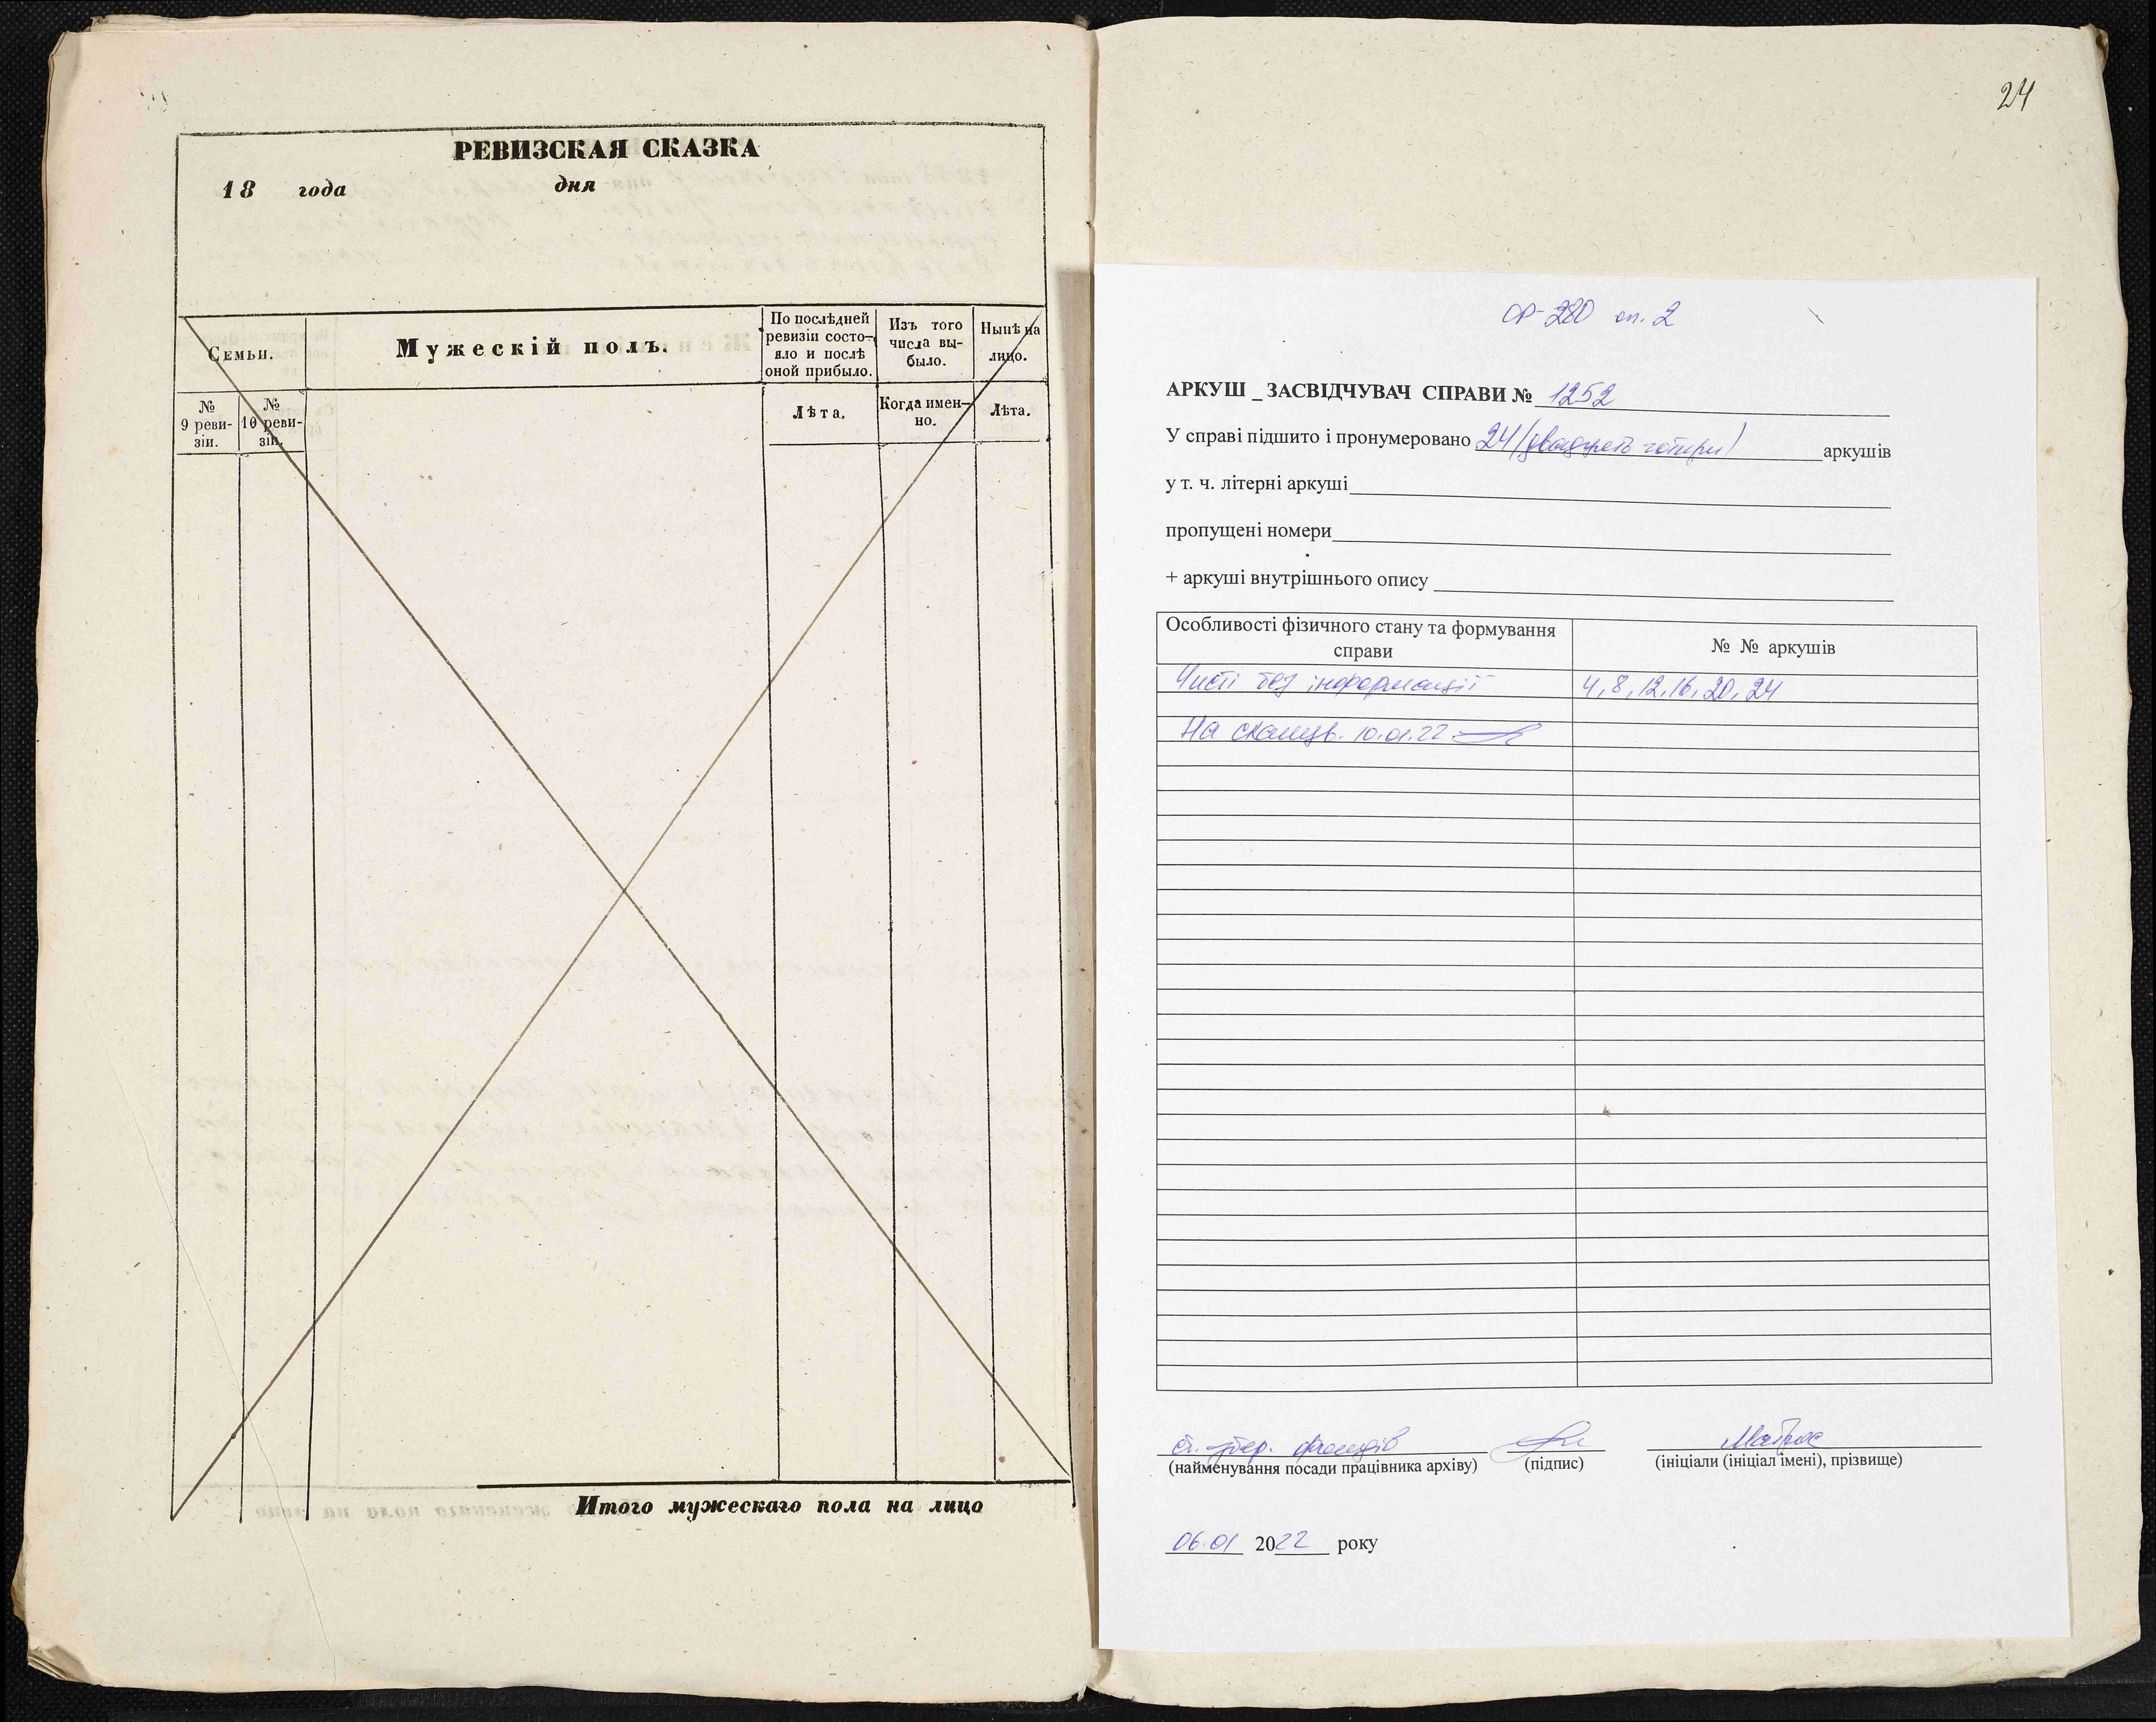 РЕВИЗСКАЯ СКАЗКА
18 года дня
Семьи.
Мужескій полъ.
По послѣдней
ревизіи состо-
яло и послѣ
оной прибыло.
Изъ того
числа вы-
было.
Нынѣ на
лицо.
№
9 реви-
зіи.
№
10 реви-
зіи.
Лѣта.
Когда имен-
но.
Лѣта.
Итого мужескаго пола на лицо
24
ф-280 оп. 2
АРКУШ _ ЗАСВІДЧУВАЧ СПРАВИ № 1252
У справі підшито і пронумеровано 24 (двадцять чотири) аркушів
у т. ч. літерні аркуші
пропущені номери
+ аркуші внутрішнього опису
Особливості фізичного стану та формування
справи
№ № аркушів
Чисті без інформації 4, 8, 12, 16, 20, 24
На 10.01.22
ст. фондів
(найменування посади працівника архіву) (підпис) (ініціали (ініціал імені), прізвище)
06.01 2022 року